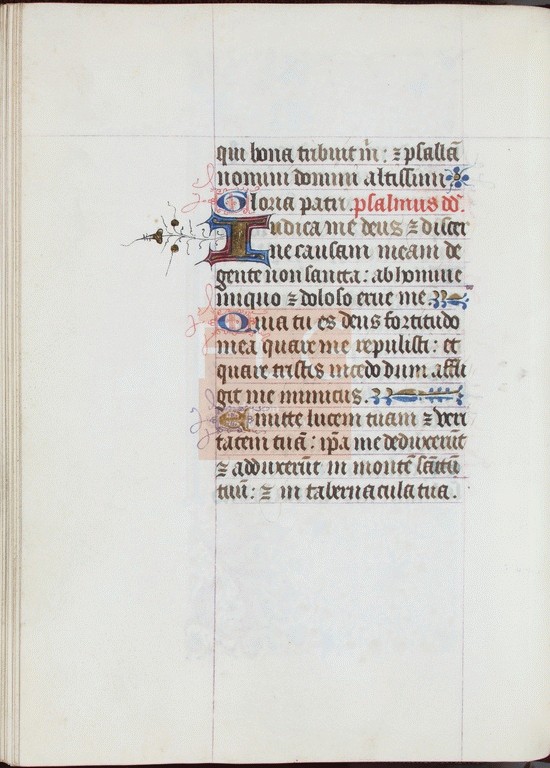 qui bona tribuit m̄: ⁊ psallā
nomini domini altissimi
Gloria patri. psalmus dd̄.
Iudica me deus ⁊ discer
ne causam meam de
gente non sancta: ab homine
iniquo ⁊ doloso erue me.
Quia tu es deus fortitudo
mea quare me repulisti: et
quare tristis incedo dum affli
git me inimicus.
Emitte lucem tuam ⁊ veri
tatem tuā: ip̄a me deduxerūt
⁊ adduxerūt in montē sc̄ūtū
tuū: ⁊ in tabernacula tua.